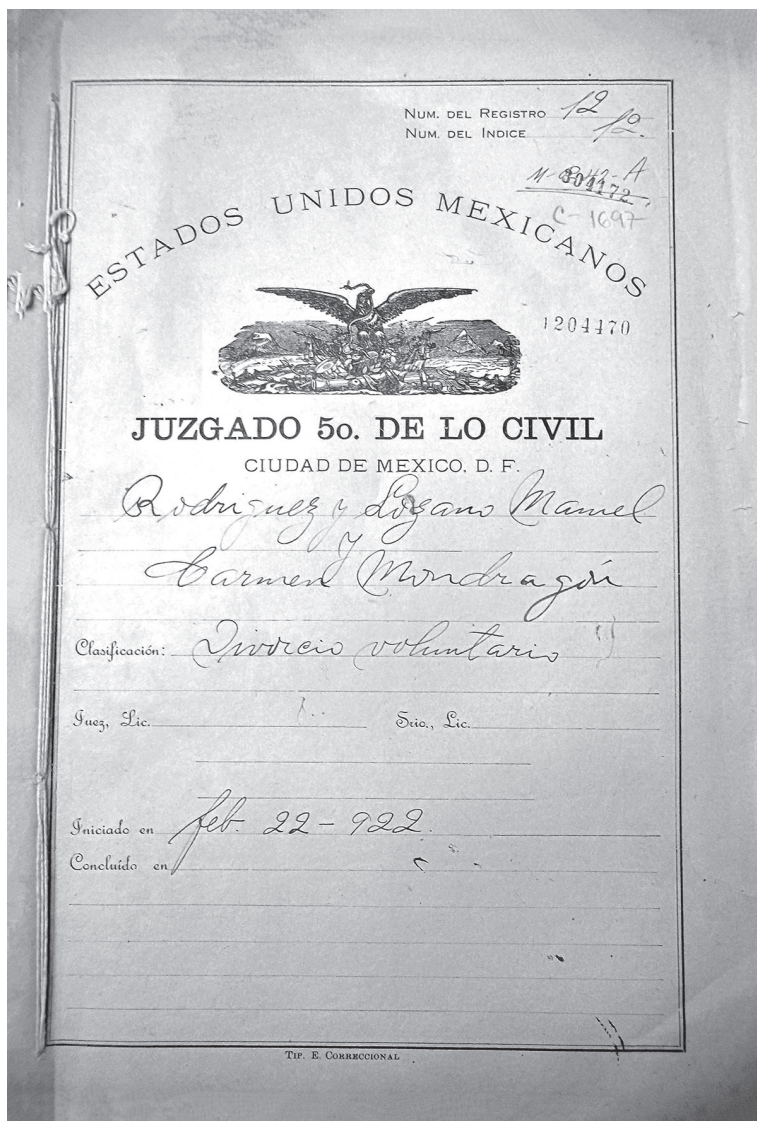 NUM. DEL REGISTRO 12
NUM. DEL INDICE 12.
304172
C-1697
ESTADOS UNIDOS MEXICANOS
1204470
JUZGADO 5o. DE LO CIVIL
CIUDAD DE MEXICO, D. F.
Rodriguez y Lozano Manuel
y
Carmen Mondragón
Clasificación: Divorcio voluntario
Juez, Lic. Srio., Lic.
Iniciado en feb. 22-922.
Concluído en
TIP. E. CORRECCIONAL